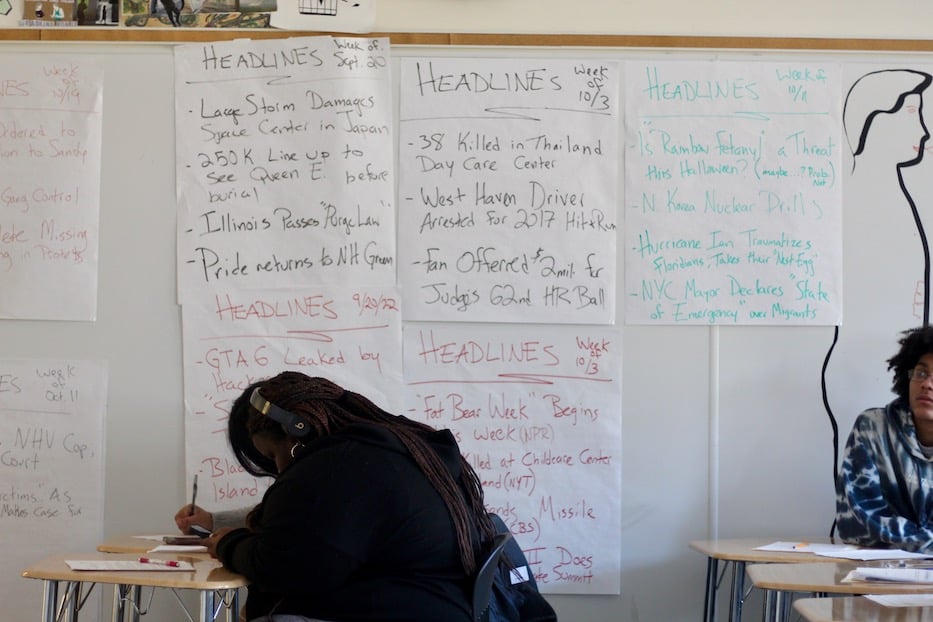 Week
of
10/19
ordered to
Gang Control
Missing
in Protests
HEADLINES Week of
Sept. 20
- Large Storm Damages
Space Center in Japan
- 250K Line up to
See Queen E. before
burial
- Illinois Passes "Purge Law"
- Pride returns to NH Green
HEADLINES Week
of
10/3
- 38 Killed in Thailand
Day Care Center
- West Haven Driver
Arrested for 2017 Hit & Run
- Fan Offerred $2 mil. for
Judg's 62nd HR Ball
HEADLINES Week of
10/11
- Is "Rainbow Fetanyl" a Threat
this Halloween? (maybe...? Prob.
Not)
- N. Korea Nuclear Drills
- Hurricane Ian Traumatizes
Floridians, Takes their "Nest Egg"
- NYC Mayor Declares "State
of Emergency" over Migrants
HEADLINES 9/20/22
- GTA 6 Leaked by
Island
HEADLINES Week
of
10/3
- "Fat Bear Week" Begins
Week (NPR)
Killed at Childcare Center
(NYT)
Missile
(CBS)
II Does
Summit
Week
of
Oct. 11
NHV Cop,
Court
As
Makes Case for